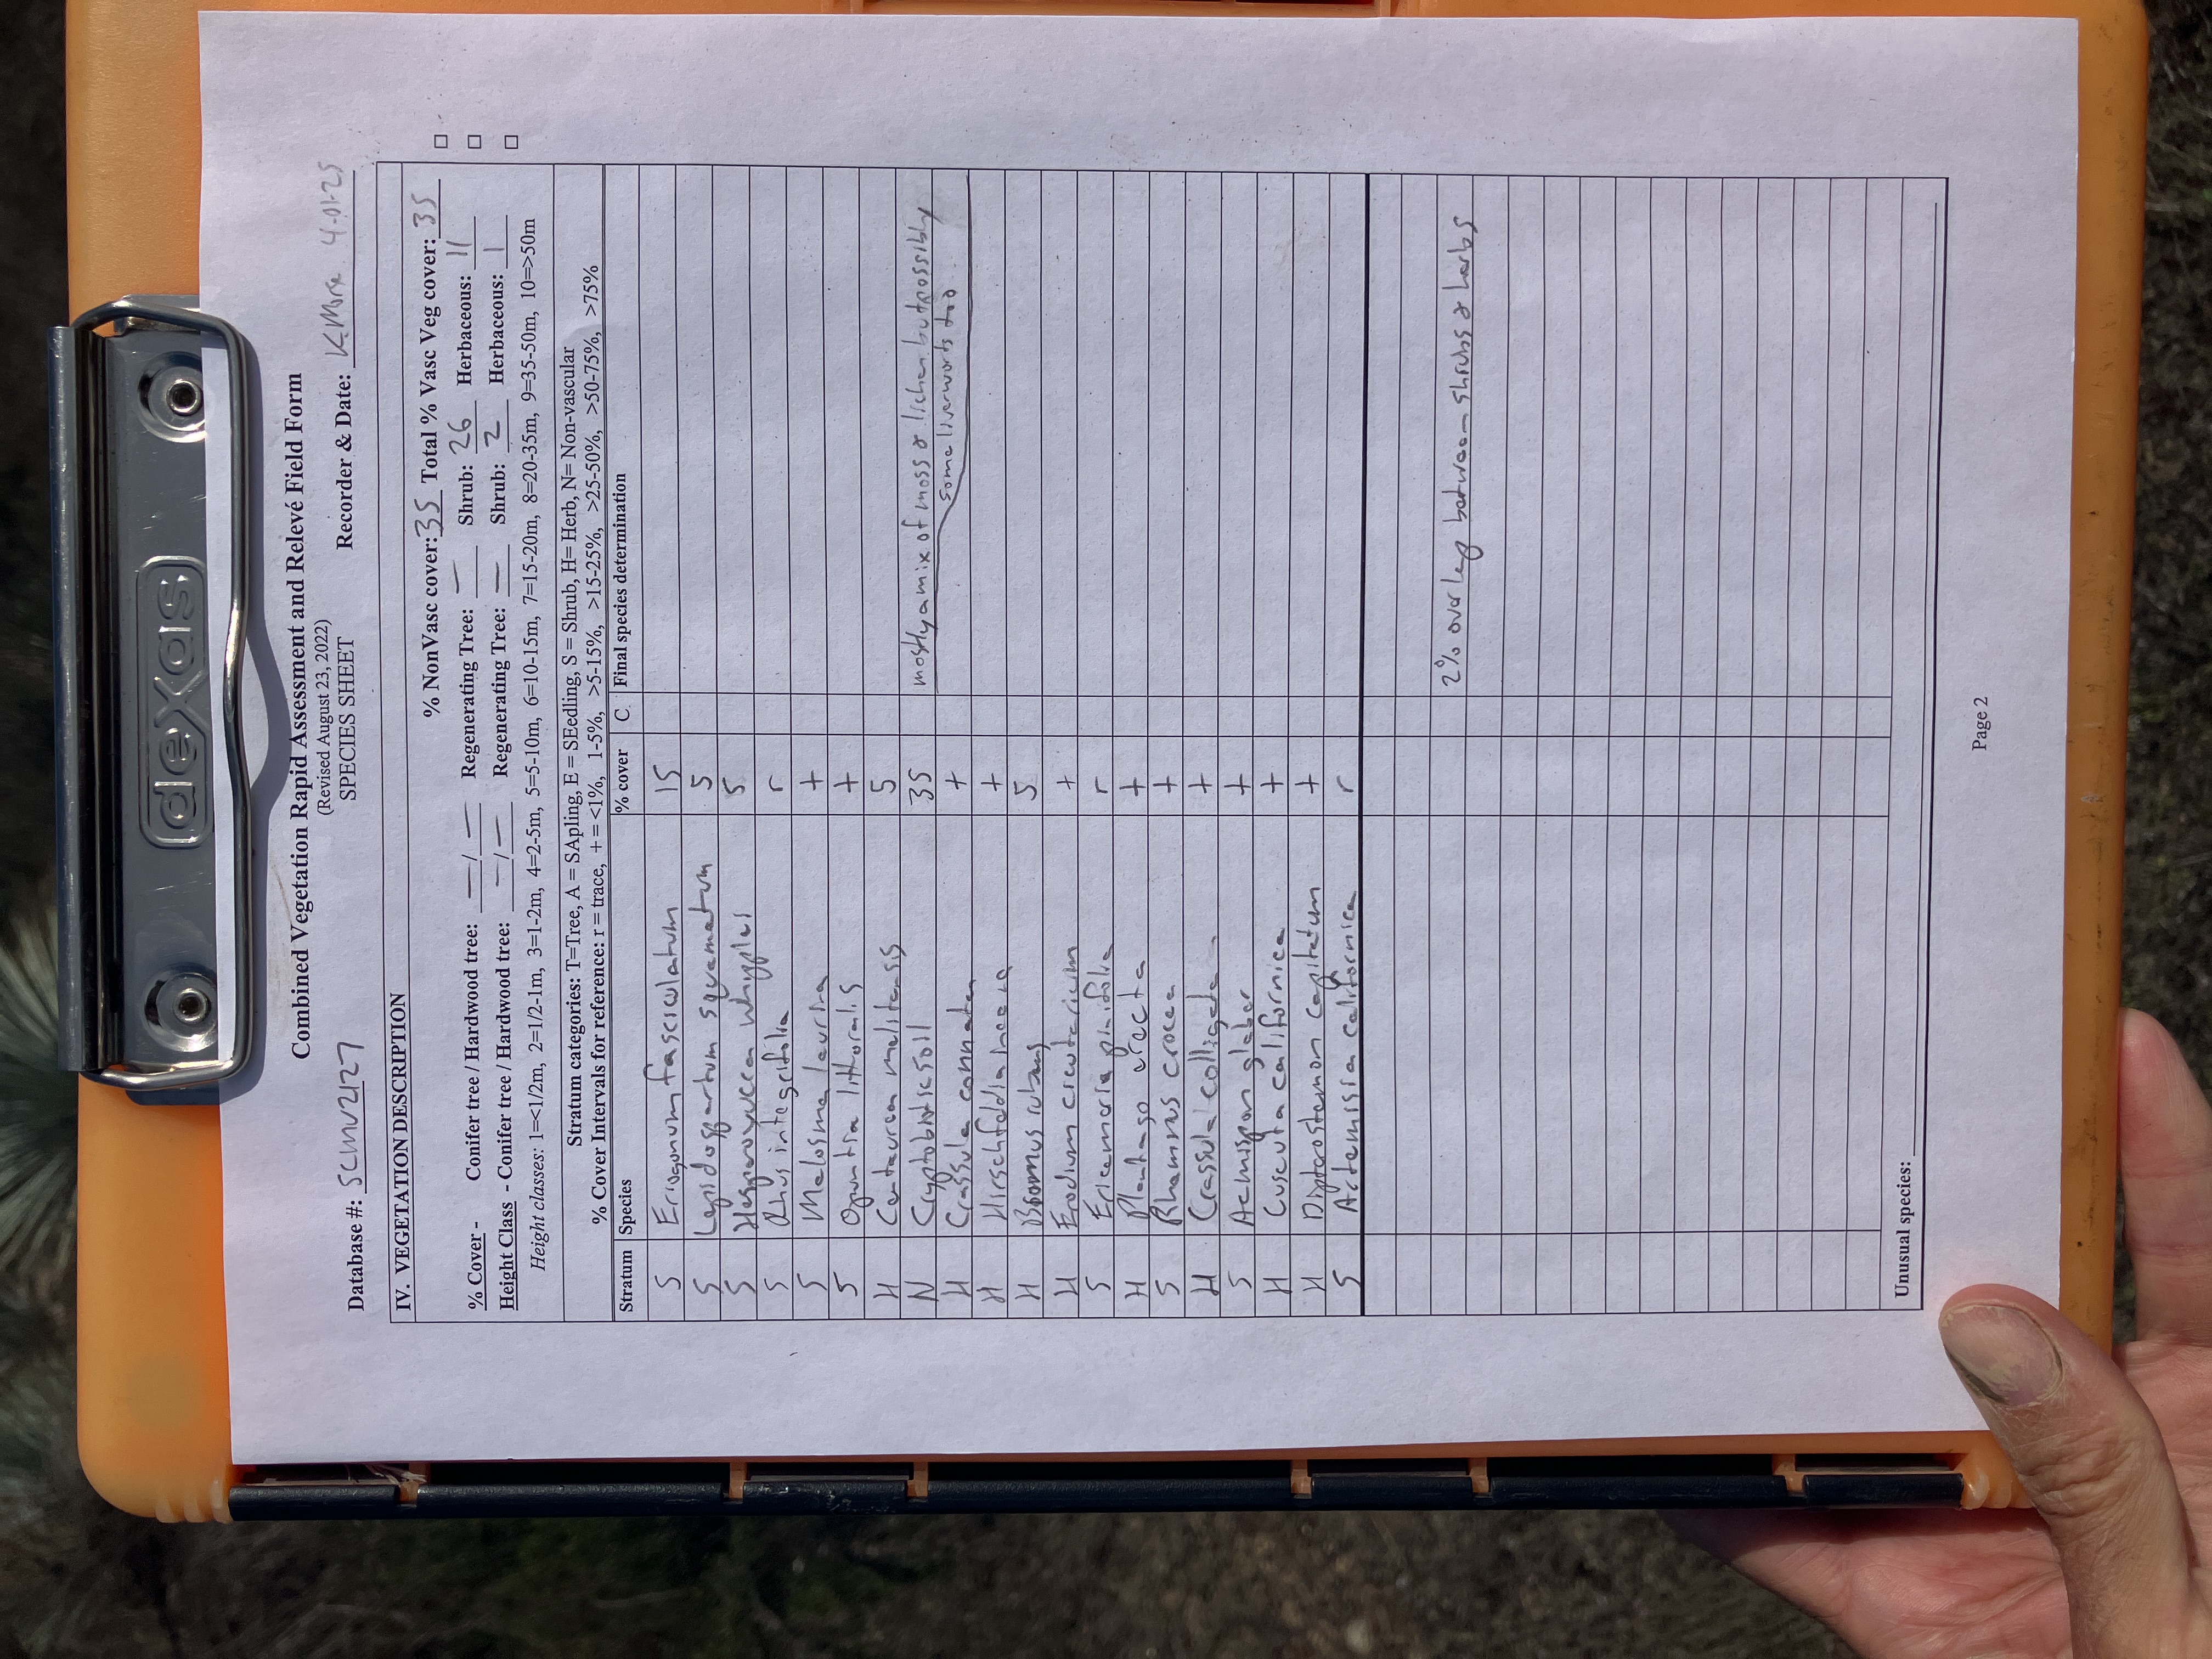 dexas
Combined Vegetation Rapid Assessment and Relevé Field Form
(Revised August 23, 2022)
SPECIES SHEET
Database #: Recorder & Date: K. Mora 4-01-25
IV. VEGETATION DESCRIPTION
% NonVasc cover: 35 Total % Vasc Veg cover: 35
% Cover - Conifer tree / Hardwood tree: — / — Regenerating Tree: — Shrub: 26 Herbaceous: 11
Height Class - Conifer tree / Hardwood tree: — / — Regenerating Tree: — Shrub: 2 Herbaceous: 1
Height classes: 1=<1/2m, 2=1/2-1m, 3=1-2m, 4=2-5m, 5=5-10m, 6=10-15m, 7=15-20m, 8=20-35m, 9=35-50m, 10=>50m
Stratum categories: T=Tree, A = SApling, E = SEedling, S = Shrub, H= Herb, N= Non-vascular
% Cover Intervals for reference: r = trace, + = <1%, 1-5%, >5-15%, >15-25%, >25-50%, >50-75%, >75%
Stratum Species % cover C Final species determination
S Eriogonum fasciculatum 15
S Lepidospartum squamatum 5
S Hesperoyucca whipplei 5
S Rhus integrifolia r
S Malosma laurina +
S Opuntia littoralis +
H Centaurea melitensis 5
N Cryptobiotic soil 35 mostly a mix of moss & lichen but possibly
H Crassula connata + some liverworts too
H Hirschfeldia incana +
H Bromus rubens 5
H Erodium cicutarium +
S Ericameria pinifolia r
H Plantago erecta +
S Rhamnus crocea +
H Crassula colligata +
S Acmispon glaber +
H Cuscuta californica +
H Dipterostemon capitatum +
S Artemisia californica r
2% overlap between shrubs & herbs
Unusual species:
Page 2